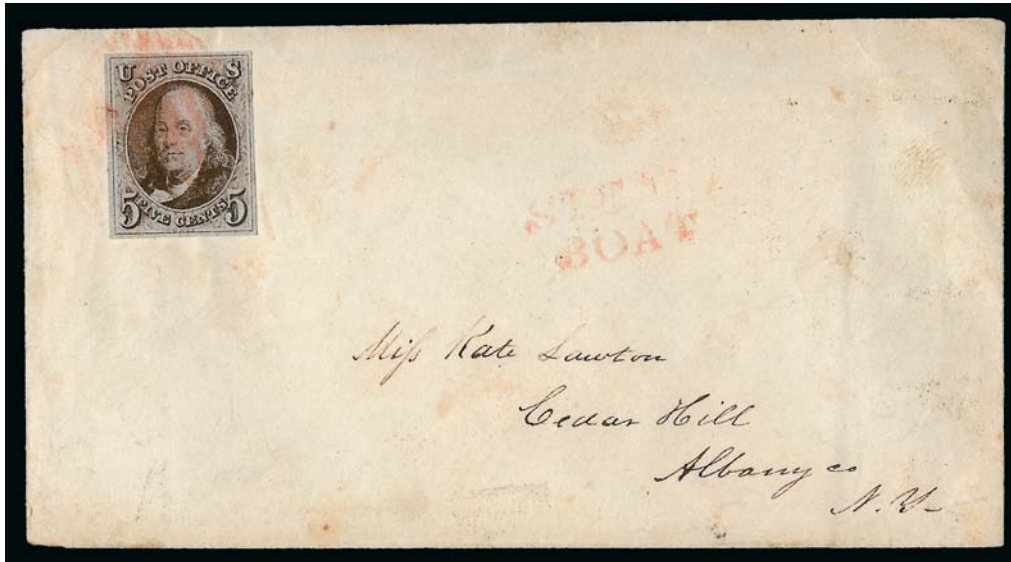 U S
POST OFFICE
5 FIVE CENTS 5
STEAM
BOAT
Miſs Kate Lawton
Cedar Hill
Albany co
N. Y.